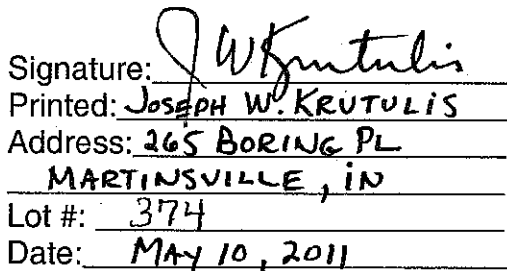 Signature: J W Krutulis
Printed: JOSEPH W. KRUTULIS
Address: 265 BORING PL
MARTINSVILLE, IN
Lot #: 374
Date: MAY 10, 2011